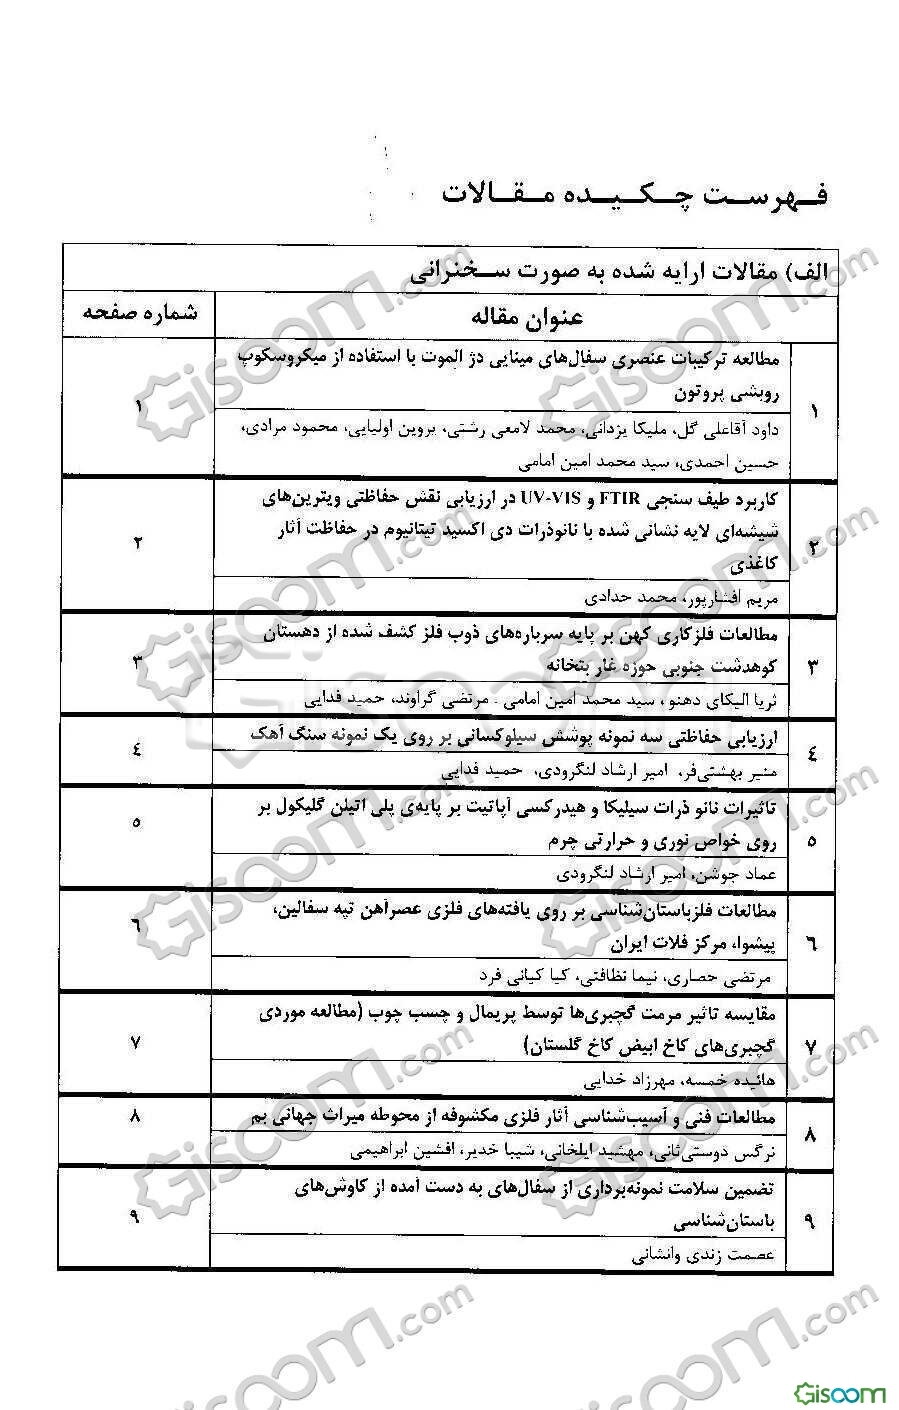 فهرست چکیده مقالات
الف) مقالات ارایه شده به صورت سخنرانی
عنوان مقاله
شماره صفحه
۱
مطالعه ترکیبات عنصری سفال‌های مینایی دژ الموت با استفاده از میکروسکوپ
روبشی پروتون
۱
داود آقاعلی گل، ملیکا یزدانی، محمد لامعی رشتی، پروین اولیایی، محمود مرادی،
حسین احمدی، سید محمد امین امامی
۲
کاربرد طیف سنجی FTIR و UV-VIS در ارزیابی نقش حفاظتی ویترین‌های
شیشه‌ای لایه نشانی شده با نانوذرات دی اکسید تیتانیوم در حفاظت آثار
کاغذی
۲
مریم افشارپور، محمد حدادی
۳
مطالعات فلزکاری کهن بر پایه سرباره‌های ذوب فلز کشف شده از دهستان
کوهدشت جنوبی حوزه غار بتخانه
۳
ثریا الیکای دهنو، سید محمد امین امامی . مرتضی گراوند، حمید فدایی
۴
ارزیابی حفاظتی سه نمونه پوشش سیلوکسانی بر روی یک نمونه سنگ آهک
۴
منیر بهشتی‌فر، امیر ارشاد لنگرودی، حمید فدایی
۵
تاثیرات نانو ذرات سیلیکا و هیدرکسی آپاتیت بر پایه‌ی پلی اتیلن گلیکول بر
روی خواص نوری و حرارتی چرم
۵
عماد جوشن، امیر ارشاد لنگرودی
۶
مطالعات فلزباستان‌شناسی بر روی یافته‌های فلزی عصرآهن تپه سفالین،
پیشوا، مرکز فلات ایران
۶
مرتضی حصاری، نیما نظافتی، کیا کیانی فرد
۷
مقایسه تاثیر مرمت گچبری‌ها توسط پریمال و چسب چوب (مطالعه موردی
گچبری‌های کاخ ابیض کاخ گلستان)
۷
هائیده خمسه، مهرزاد خدایی
۸
مطالعات فنی و آسیب‌شناسی آثار فلزی مکشوفه از محوطه میراث جهانی بم
۸
نرگس دوستی‌ثانی، مهشید ایلخانی، شیبا خدیر، افشین ابراهیمی
۹
تضمین سلامت نمونه‌برداری از سفال‌های به دست آمده از کاوش‌های
باستان‌شناسی
۹
عصمت زندی وانشانی
Gisoom